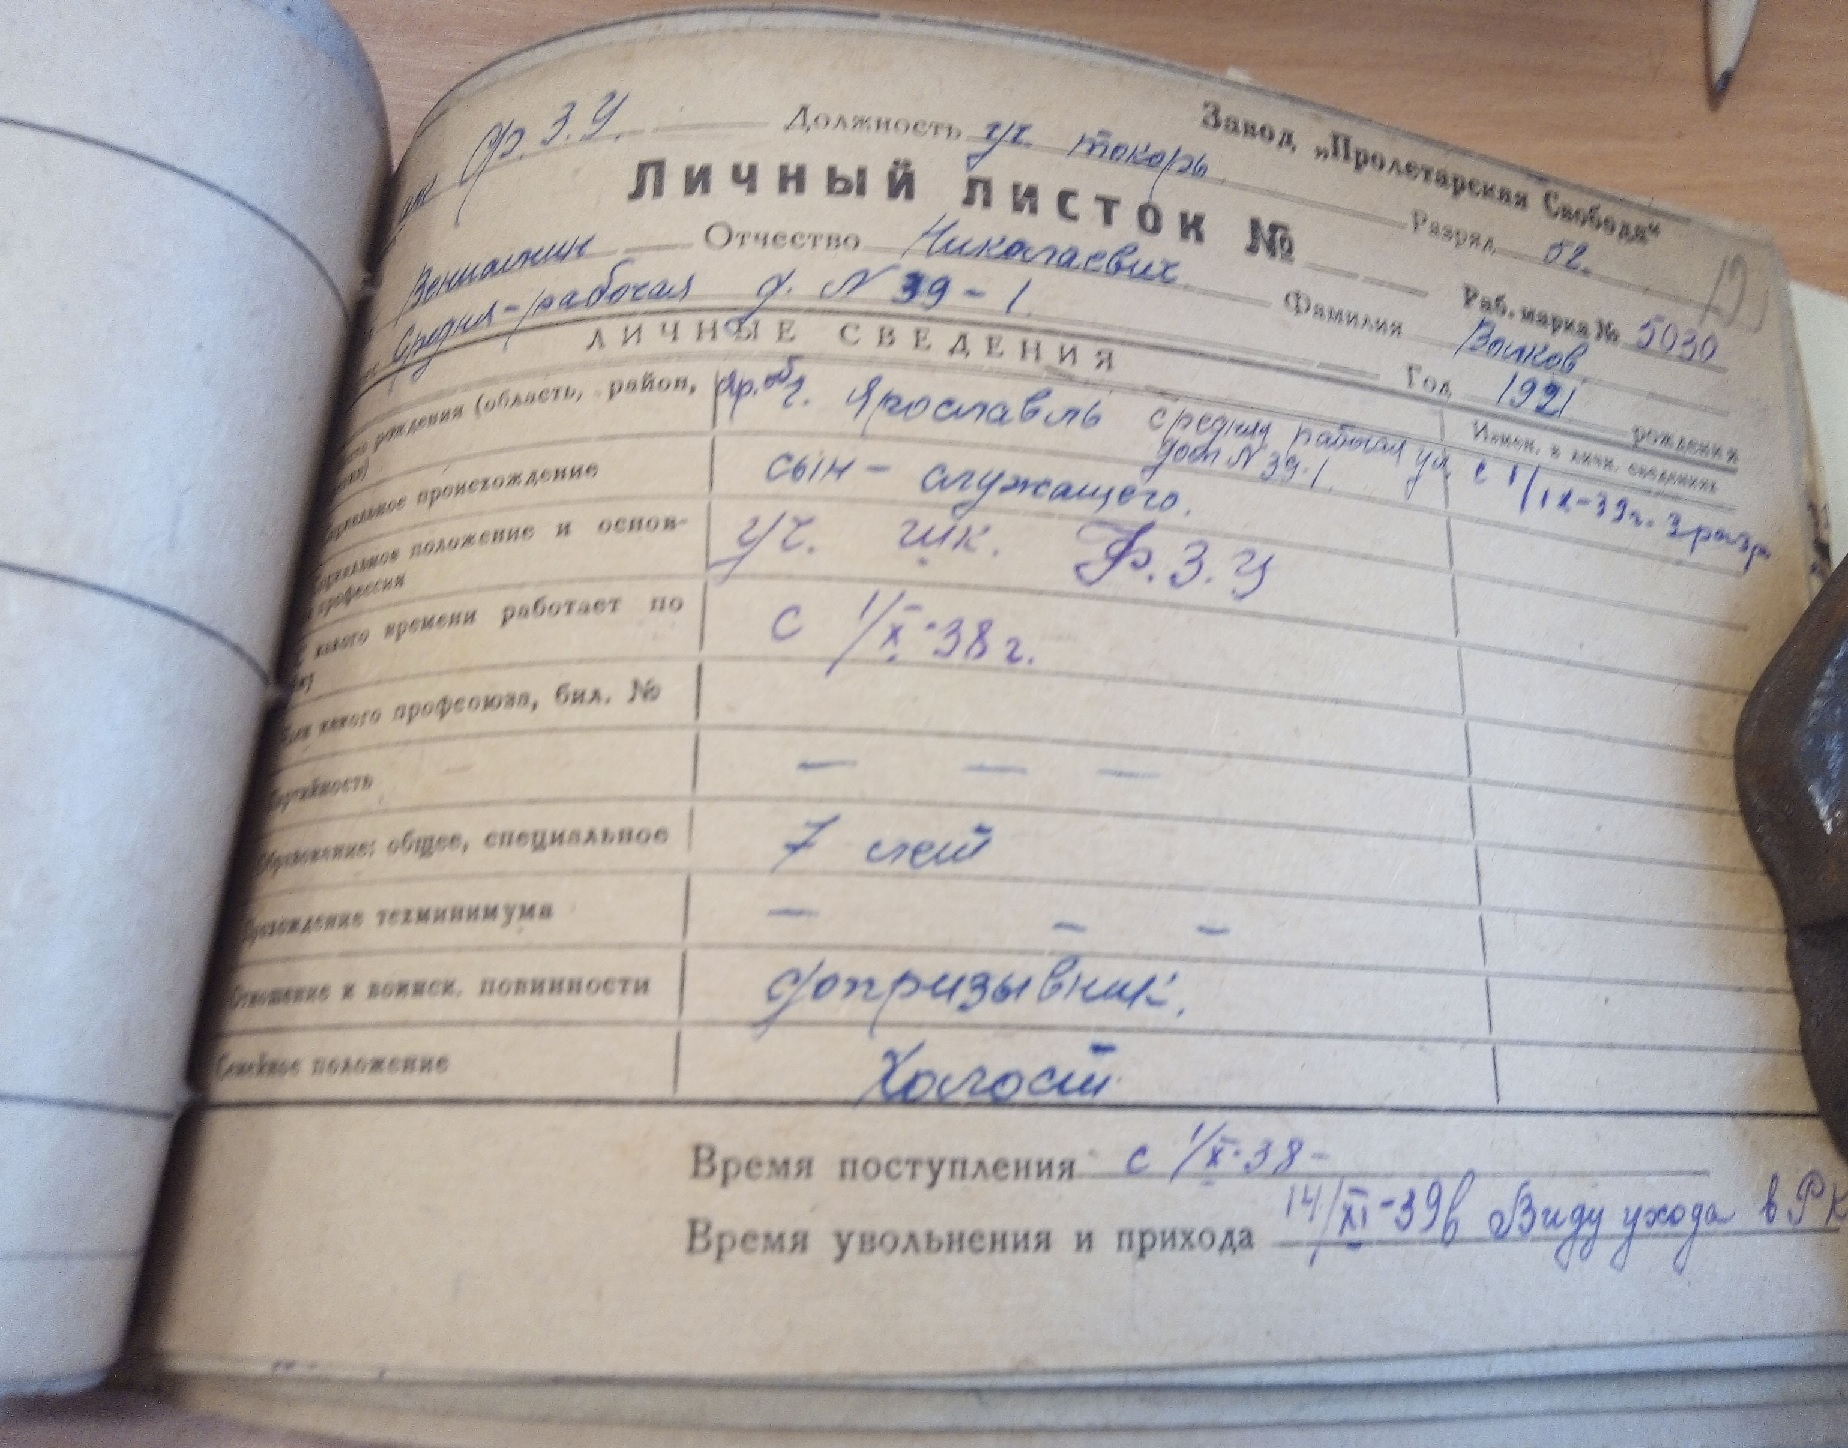 Завод „Пролетарская Свобода“
Ф.З.У. Должность уч. токарь Разряд
Личный листок № Раб. марка № 5030
Вениамин Отчество Николаевич Фамилия Волков
Средня-рабочая д. N 39-1 Год 1921 рождения
ЛИЧНЫЕ СВЕДЕНИЯ Измен. в личн. сведениях
рождения (область, район, Яр. об. г. Ярославль средняя рабочая ул. дом N 39-1 с 1/IX-39г. 3 разр
происхождение сын - служащего.
положение и основ-
профессия уч. шк. Ф.З.У
какого времени работает по с 1/X-38 г.
какого профсоюза, бил. №
Партийность — — —
Образование: общее, специальное 7 лет
Прохождение техминимума — – –
Отношение к воинск. повинности допризывник.
Семейное положение Холост
Время поступления с 1/X-38-
Время увольнения и прихода 14/XI-39 в Виду ухода в РК